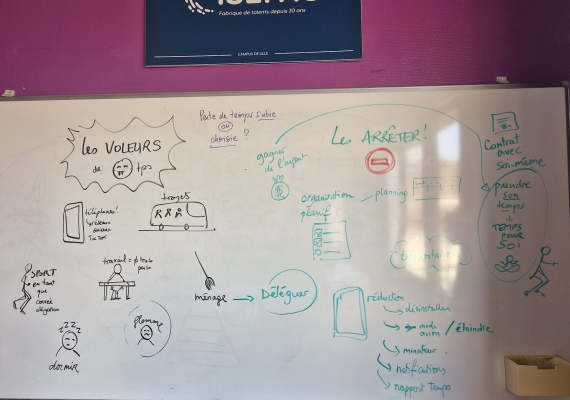 Fabrique de talents depuis 30 ans
CAMPUS DE LILLE
Perte de temps subie
ou
choisie ?
Les VOLEURS
de tps
téléphones/
réseaux
sociaux
TikTok
trajets
SPORT
en tant
que
corvée
obligation
travail =
ménage
Déléguer
flemme
zzz
dormir
Les ARRÊTER !
gagner
de l'argent
$
organisation
planif
planning
Contrat
avec
soi-même
prendre
son
temps
+
TEMPS
POUR
SOI
réduction
désinstaller
mode
avion / éteindre
minuteur
notifications
rapport Temps